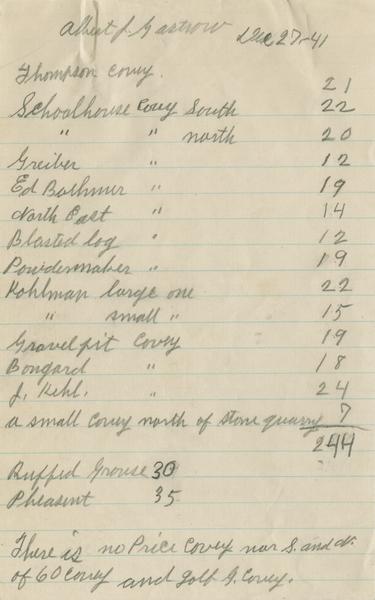 Albert J. Gastrow Dec 27-41
Thompson Covey. 21
Schoolhouse Covey South 22
" " north 20
Greiber " 12
Ed Bothmer " 19
North East " 14
Blasted log " 12
Powdermaker " 19
Kohlman large one 22
" small " 15
Gravel pit Covey 19
Bongard " 18
J. Kehl. " 24
a small Covey north of stone quarry 7
244
Ruffed Grouse 30
Pheasent 35
There is no Price Covey nor S. and N.
of 60 Covey and Golf G. Covey.